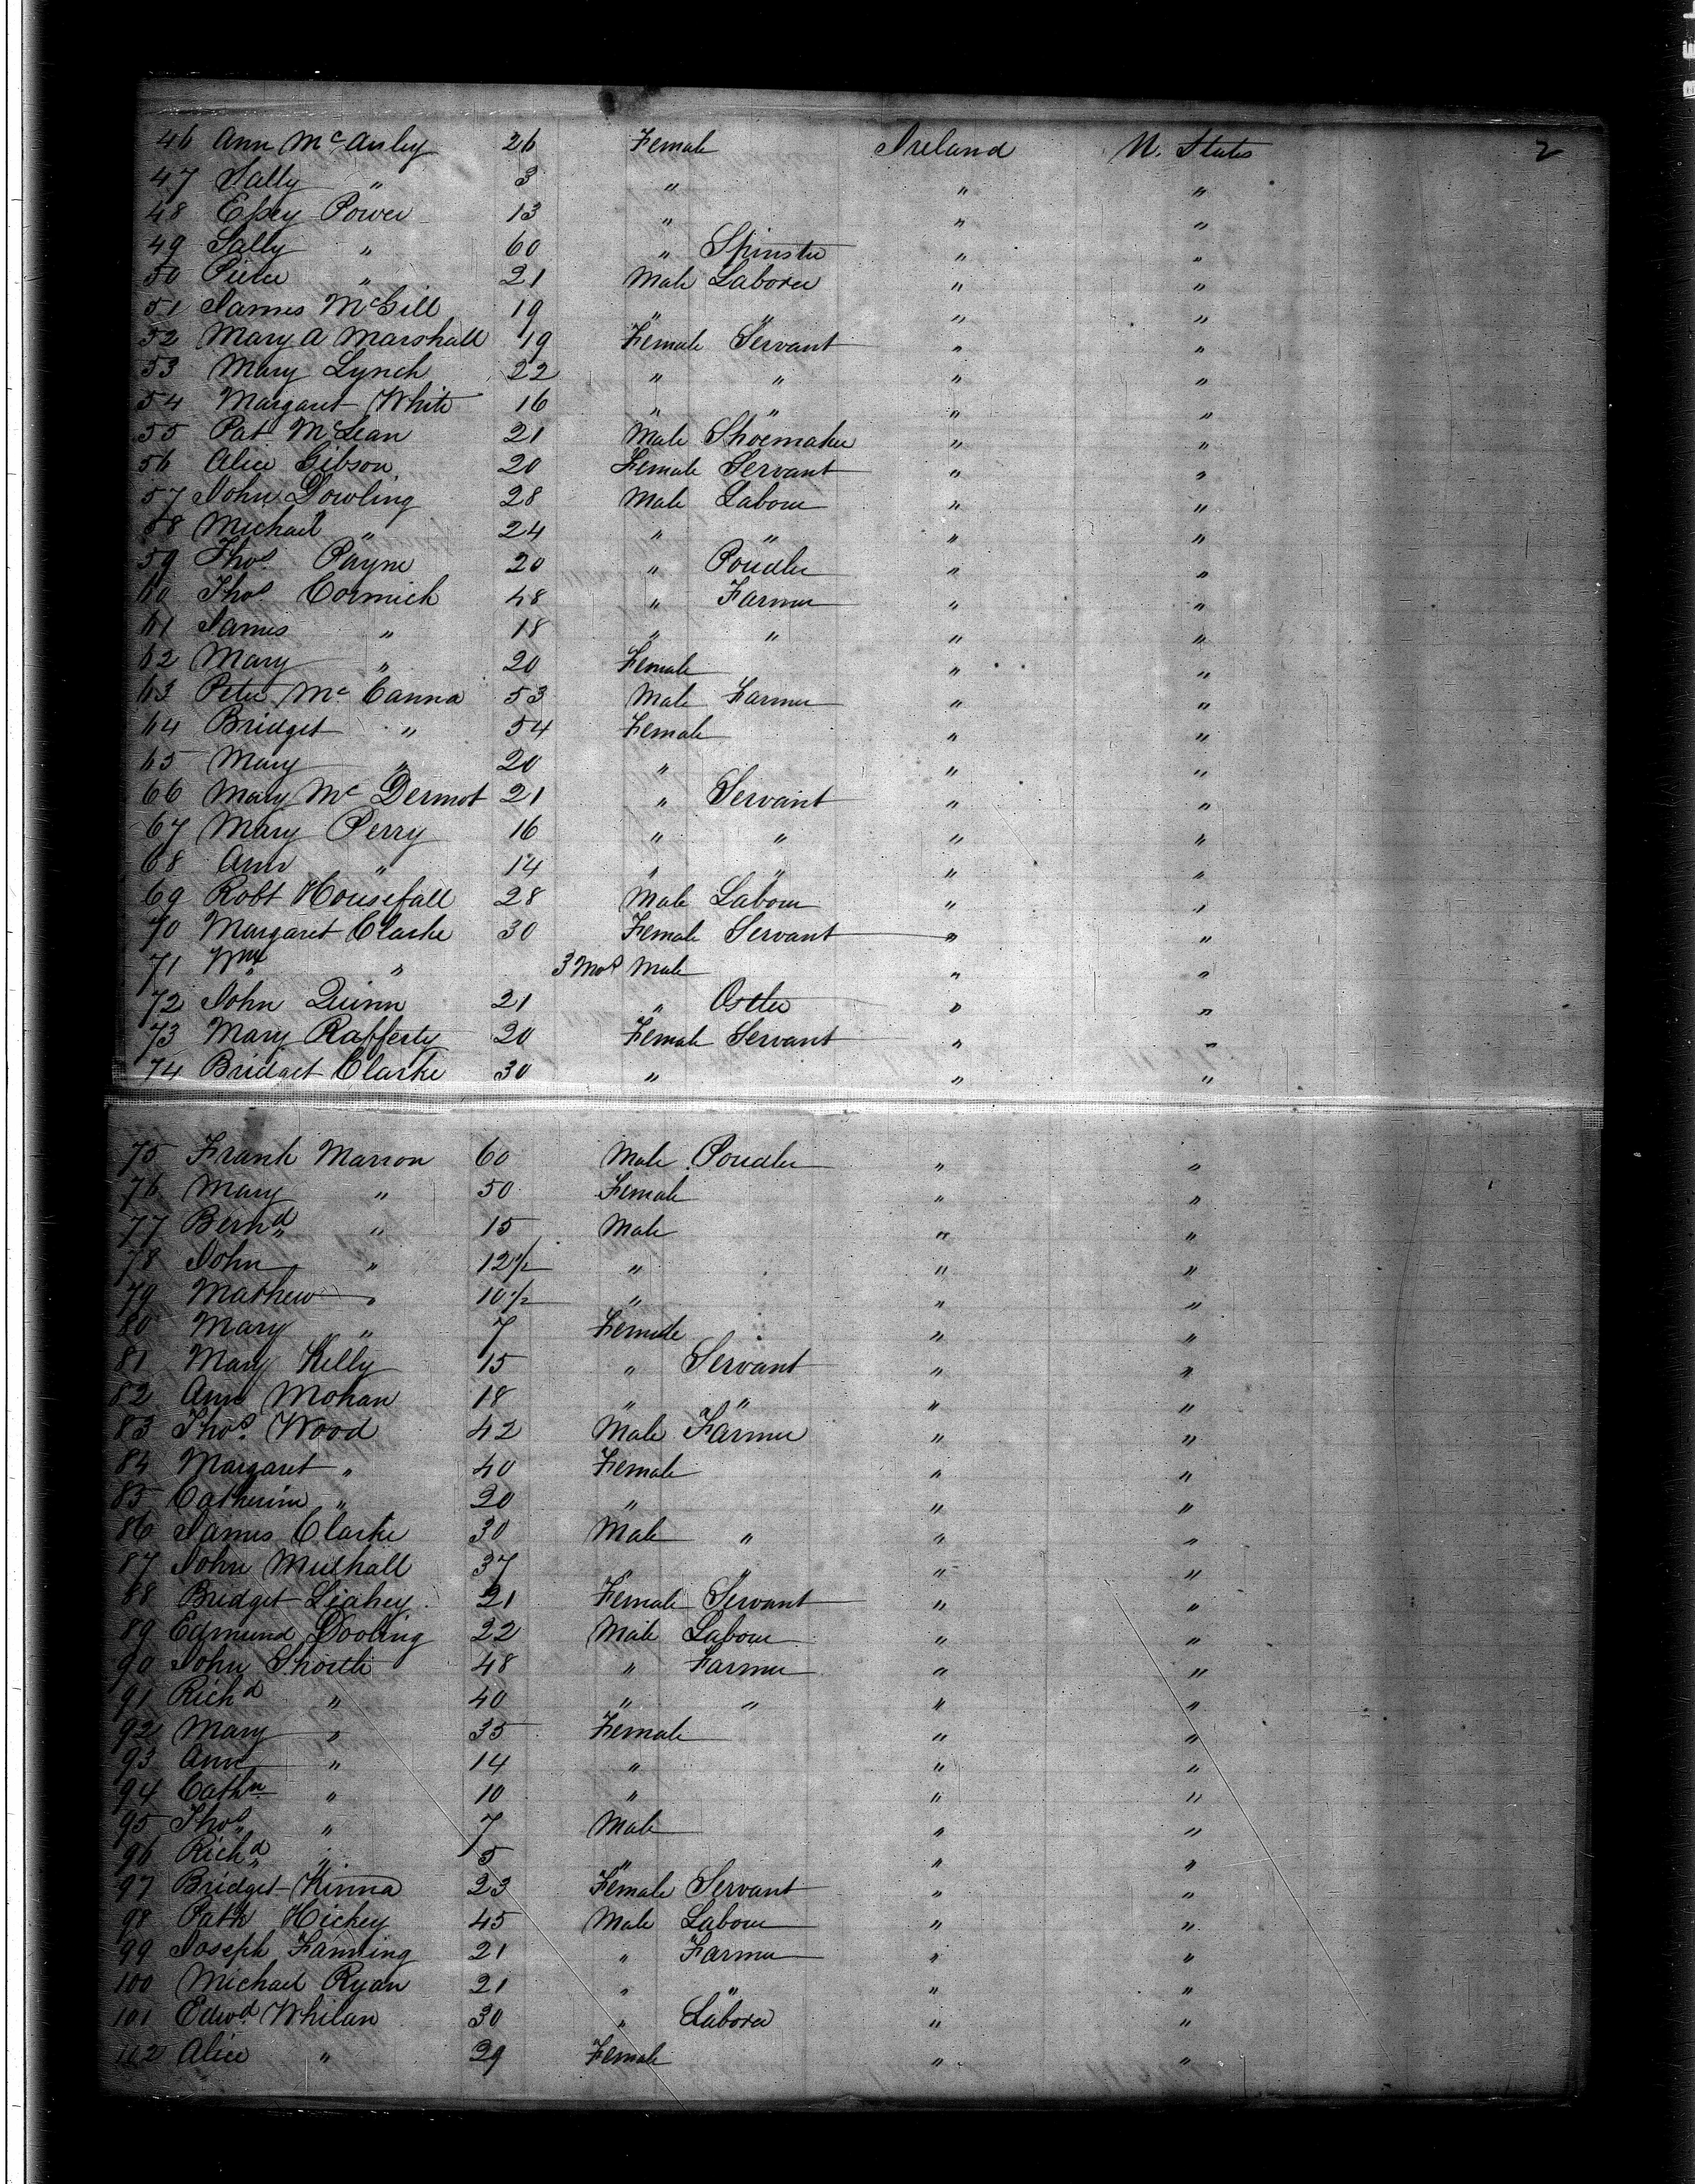 46 Ann McAuley 26 Female Ireland U. States 2
47 Sally " 3 " " "
48 Essey Power 13 " " "
49 Sally " 60 " Spinster " "
50 Pierce " 21 Male Laborer " "
51 James McGill 19 " " " "
52 Mary A Marshall 19 Female Servant " "
53 Mary Lynch 22 " " " "
54 Margaret White 16 " " " "
55 Pat McLean 21 Male Shoemaker " "
56 Alice Gibson 20 Female Servant " "
57 John Dowling 28 Male Labour " "
58 Michael " 24 " " " "
59 Thos Payne 20 " Peudler " "
60 Thos Cormick 48 " Farmer " "
61 James " 18 " " " "
62 Mary " 20 Female " "
63 Peter McCanna 53 Male Farmer " "
64 Bridget " 54 Female " "
65 Mary " 20 " " "
66 Mary McDermot 21 " Servant " "
67 Mary Perry 16 " " " "
68 Ann " 14 " " " "
69 Robt Housefall 28 Male Labour " "
70 Margaret Clarke 30 Female Servant " "
71 Wm " 3 Mos Male " "
72 John Quinn 21 " Ostler " "
73 Mary Rafferty 20 Female Servant " "
74 Bridget Clarke 30 " " "
75 Frank Marron 60 Male Peudler " "
76 Mary " 50 Female " "
77 Bernd " 15 Male " "
78 John " 12½ " " "
79 Mathew " 10½ " " "
80 Mary " 7 Female " "
81 Mary Kelly 15 " Servant " "
82 Ann Mohan 18 " " " "
83 Thos Wood 42 Male Farmer " "
84 Margaret " 40 Female " "
85 Catherine " 20 " " "
86 James Clarke 30 Male " " "
87 John Mulhall 37 " " " "
88 Bridget Leahey 21 Female Servant " "
89 Edmund Dooling 22 Male Labour " "
90 John Shortle 48 " Farmer " "
91 Richd " 40 " " " "
92 Mary " 35 Female " "
93 Ann " 14 " " "
94 Cathn " 10 " " "
95 Thos " 7 Male " "
96 Richd " 5 " " "
97 Bridget Kinna 23 Female Servant " "
98 Patk Hickey 45 Male Labour " "
99 Joseph Fanning 21 " Farmer " "
100 Michael Ryan 21 " " " "
101 Edwd Whilan 30 " Laborer " "
102 Alice " 29 Female " "